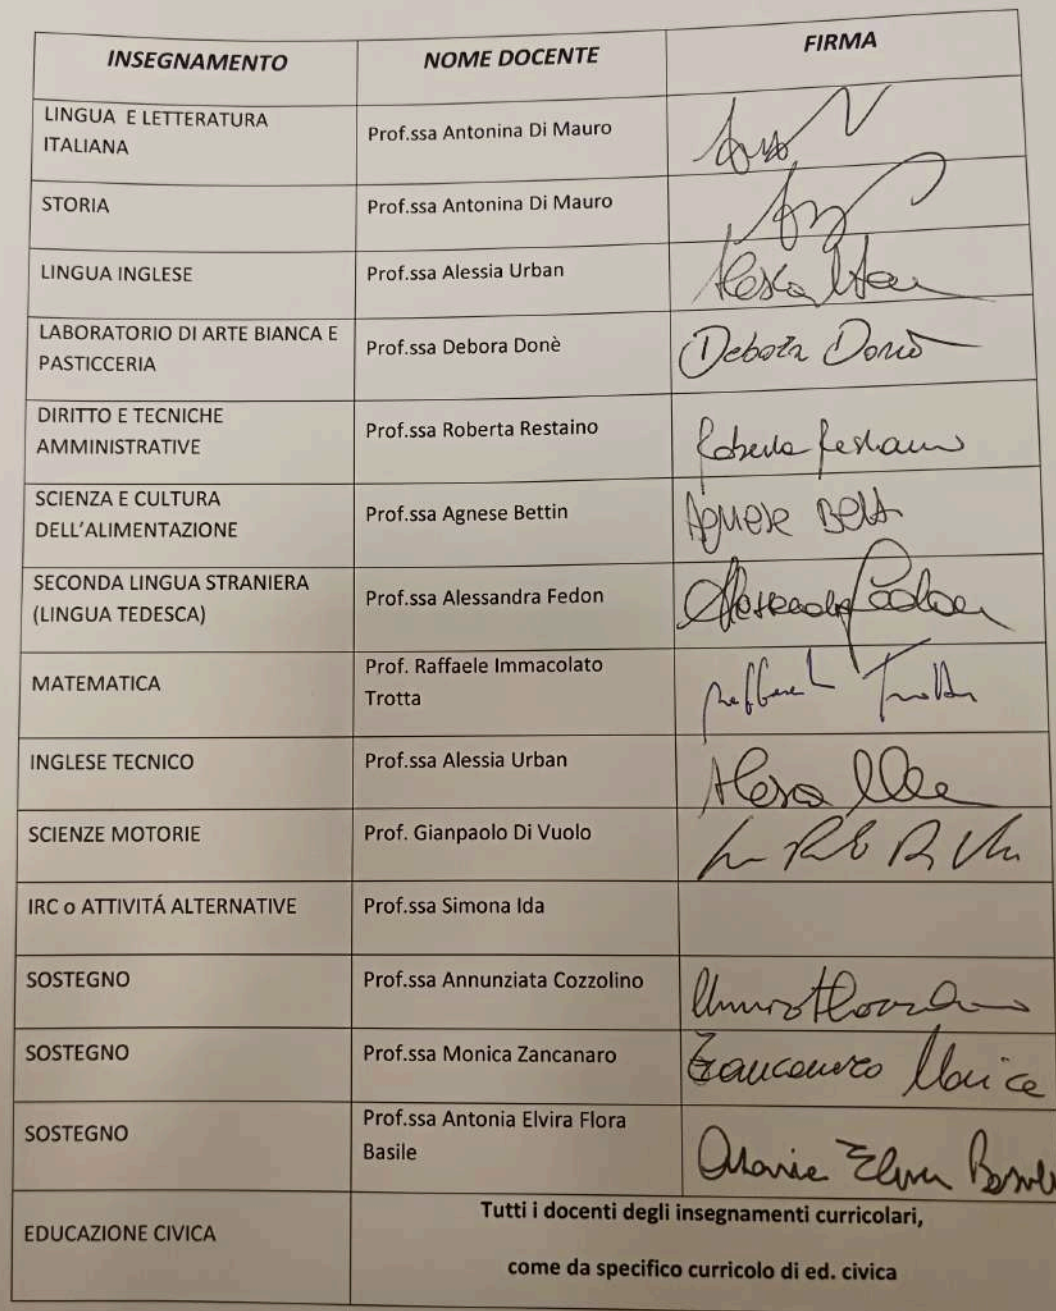 INSEGNAMENTO NOME DOCENTE FIRMA
LINGUA E LETTERATURA
ITALIANA
Prof.ssa Antonina Di Mauro
STORIA
Prof.ssa Antonina Di Mauro
LINGUA INGLESE
Prof.ssa Alessia Urban
LABORATORIO DI ARTE BIANCA E
PASTICCERIA
Prof.ssa Debora Donè
Debora Donè
DIRITTO E TECNICHE
AMMINISTRATIVE
Prof.ssa Roberta Restaino
Roberta Restaino
SCIENZA E CULTURA
DELL'ALIMENTAZIONE
Prof.ssa Agnese Bettin
Agnese
SECONDA LINGUA STRANIERA
(LINGUA TEDESCA)
Prof.ssa Alessandra Fedon
MATEMATICA
Prof. Raffaele Immacolato
Trotta
INGLESE TECNICO
Prof.ssa Alessia Urban
SCIENZE MOTORIE
Prof. Gianpaolo Di Vuolo
IRC o ATTIVITÁ ALTERNATIVE
Prof.ssa Simona Ida
SOSTEGNO
Prof.ssa Annunziata Cozzolino
SOSTEGNO
Prof.ssa Monica Zancanaro
Zancanaro Monica
SOSTEGNO
Prof.ssa Antonia Elvira Flora
Basile
EDUCAZIONE CIVICA
Tutti i docenti degli insegnamenti curricolari,
come da specifico curricolo di ed. civica